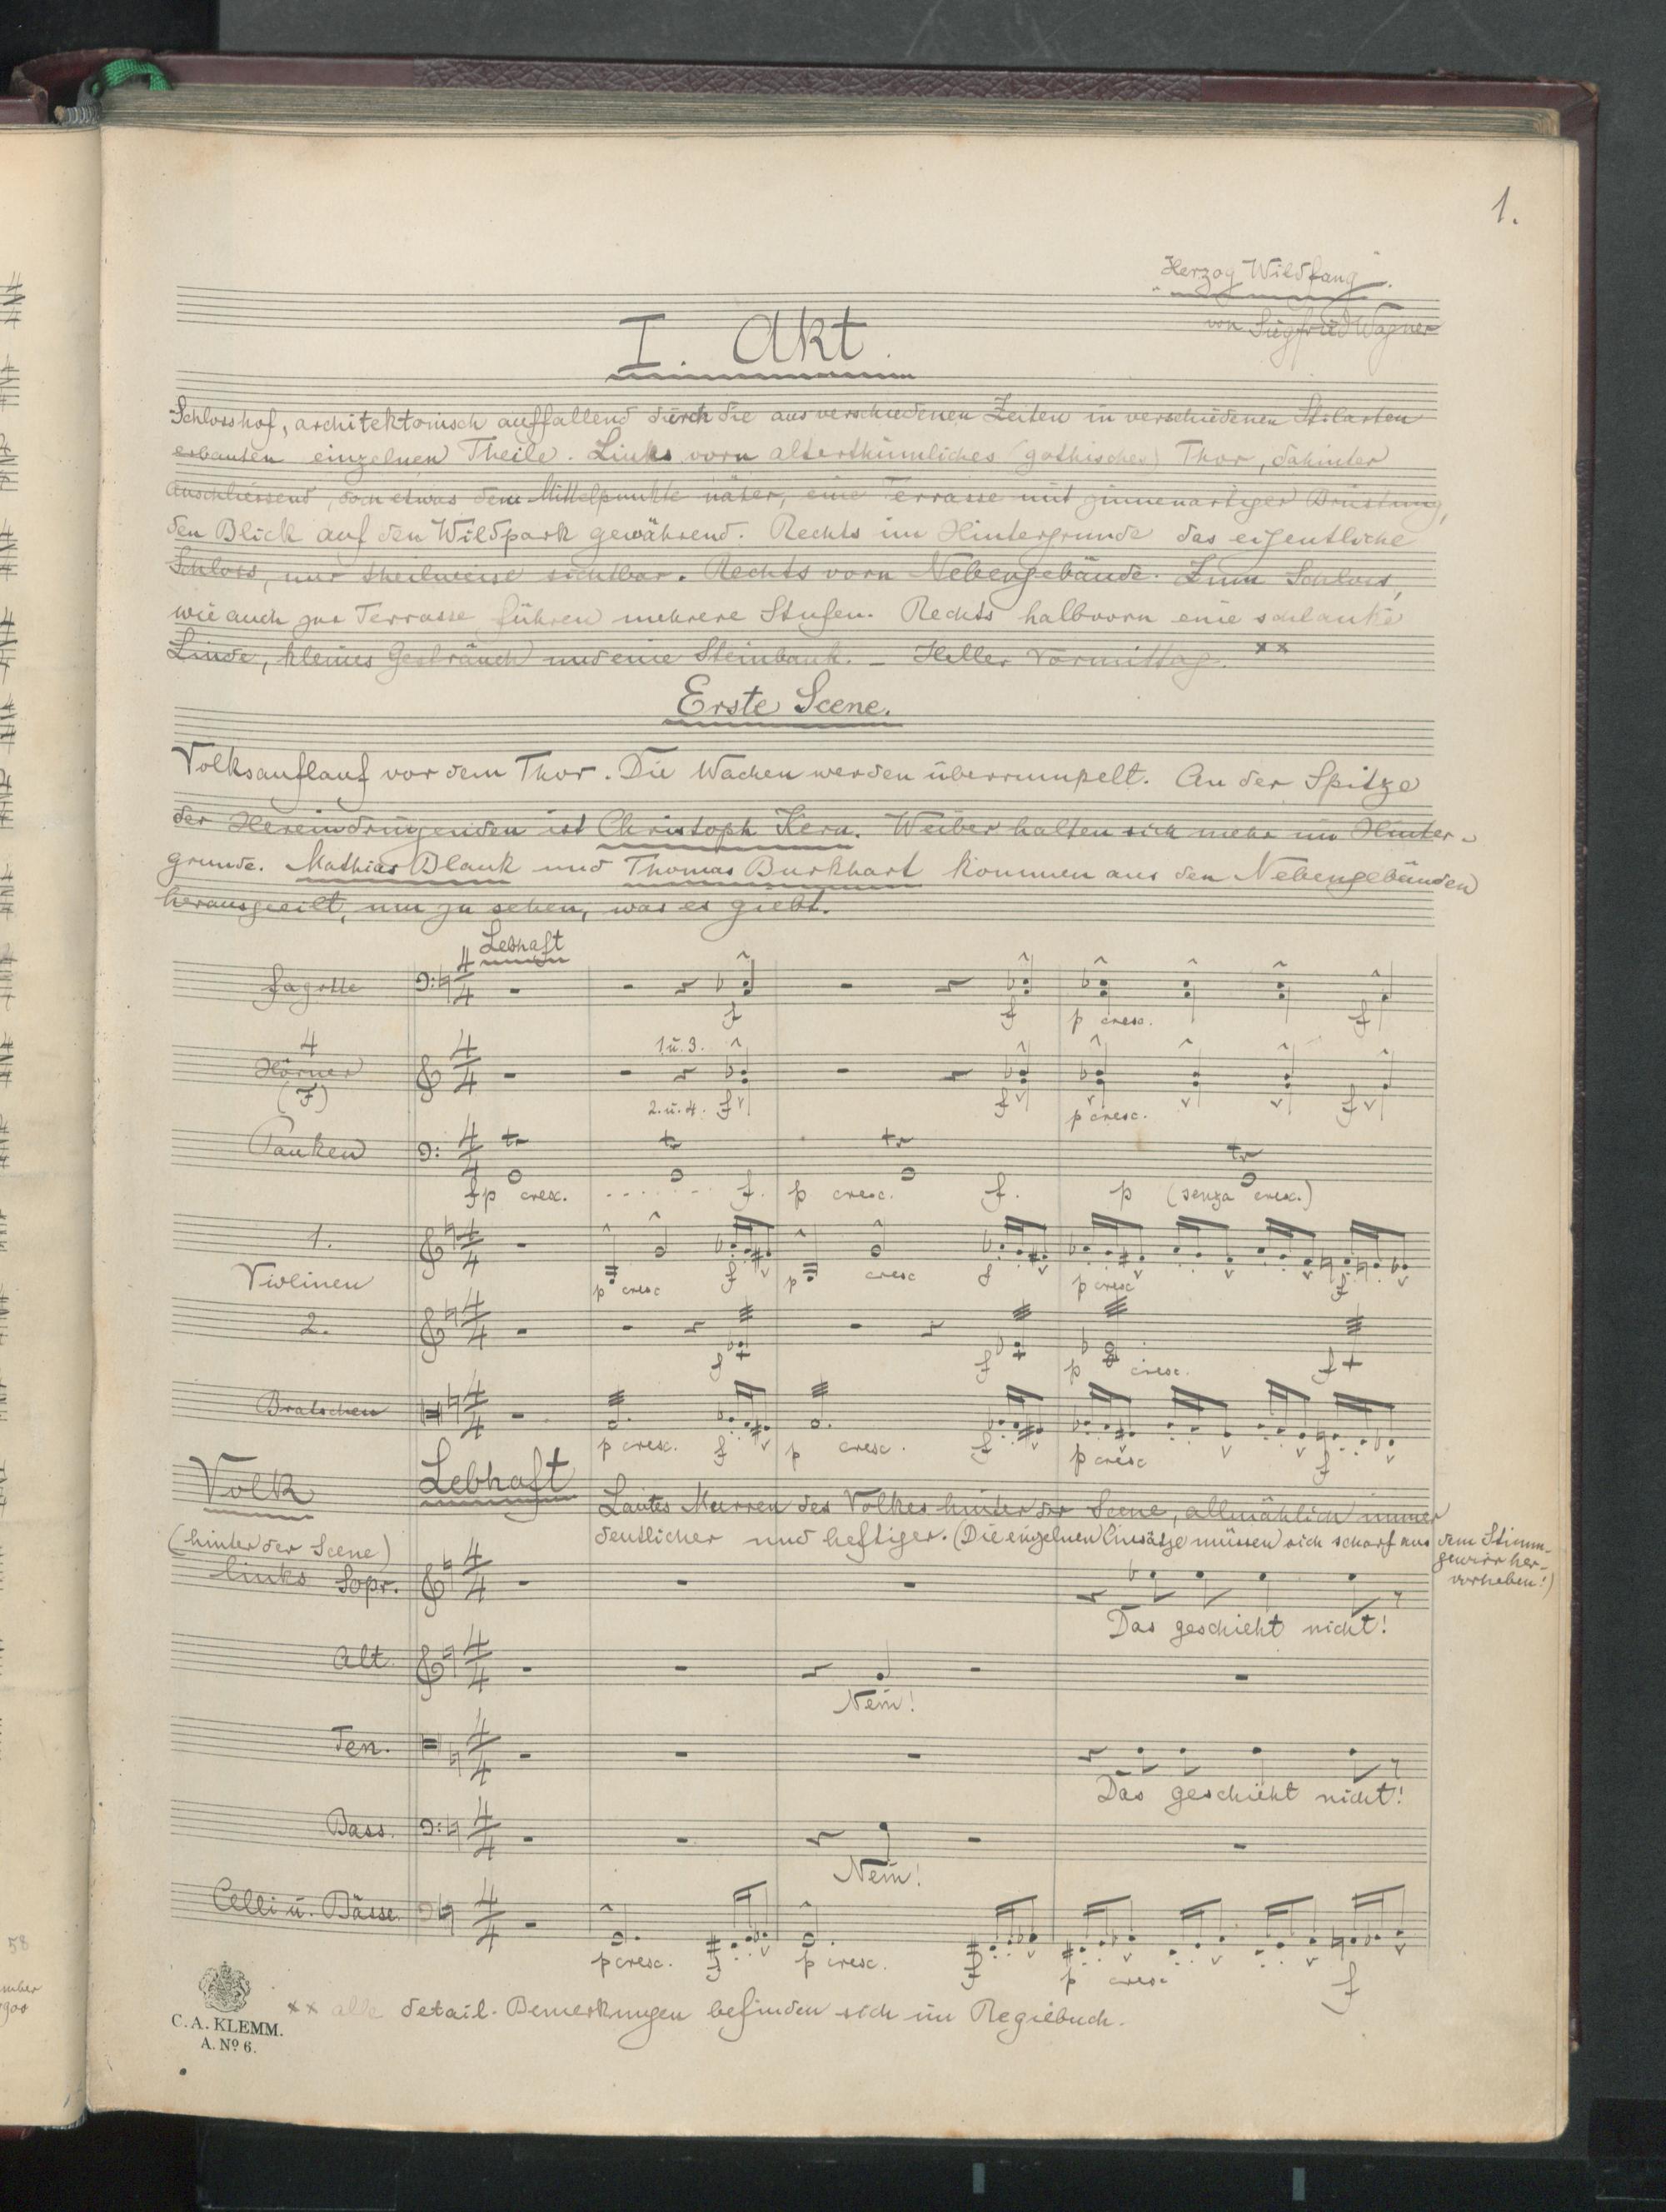 1.
"Herzog Wildfang".
von Siegfried Wagner
I. Akt.
Schlosshof, architektonisch auffallend durch die aus verschiedenen Zeiten in verschiedenen Stilarten
erbauten einzelnen Theile. Links vorn alterthümliches (gothisches) Thor, dahinter
anschliessend, doch etwas dem Mittelpunkte näher, eine Terrasse mit zinnenartiger Brüstung,
den Blick auf den Wildpark gewährend. Rechts im Hintergrunde das eigentliche
Schloss, nur theilweise sichtbar. Rechts vorn Nebengebäude. Zum Schloss,
wie auch zur Terrasse führen mehrere Stufen. Rechts halbvorn eine schlanke
Linde, kleines Gesträuch und eine Steinbank. – Heller Vormittag. xx
Erste Scene.
Volksauflauf vor dem Thor. Die Wachen werden überrumpelt. An der Spitze
der Hereindringenden ist Christoph Kern. Weiber halten sich mehr im Hinter-
grunde. Mathias Blank und Thomas Burkhart kommen aus den Nebengebäuden
herausgeeilt, um zu sehen, was es giebt.
Lebhaft
Fagotte 4/4
f f p cresc. f
4 Hörner (F) 4/4
1. u. 3.
2. u. 4. f f p cresc. f
Pauken 4/4 tr tr tr tr
fp cresc. . . . . . . f. p cresc. f. p (senza cresc.)
Violinen
1. 4/4
p cresc f p cresc f p cresc f
2. 4/4
f f p cresc. f
Bratschen 4/4
p cresc. f p cresc. f p cresc f
Volk
(hinter der Scene)
links
Lebhaft
Lautes Murren des Volkes hinter der Scene, allmählich immer
deutlicher und heftiger. (Die einzelnen Einsätze müssen sich scharf aus dem Stimm-
gewirr her-
vorheben!)
Sopr. 4/4
Das geschieht nicht!
Alt. 4/4
Nein!
Ten. 4/4
Das geschieht nicht!
Bass. 4/4
Nein!
Celli u. Bässe 4/4
p cresc. f p cresc. f p cresc f
xx alle detail. Bemerkungen befinden sich im Regiebuch.
C. A. KLEMM.
A. Nº 6.
58